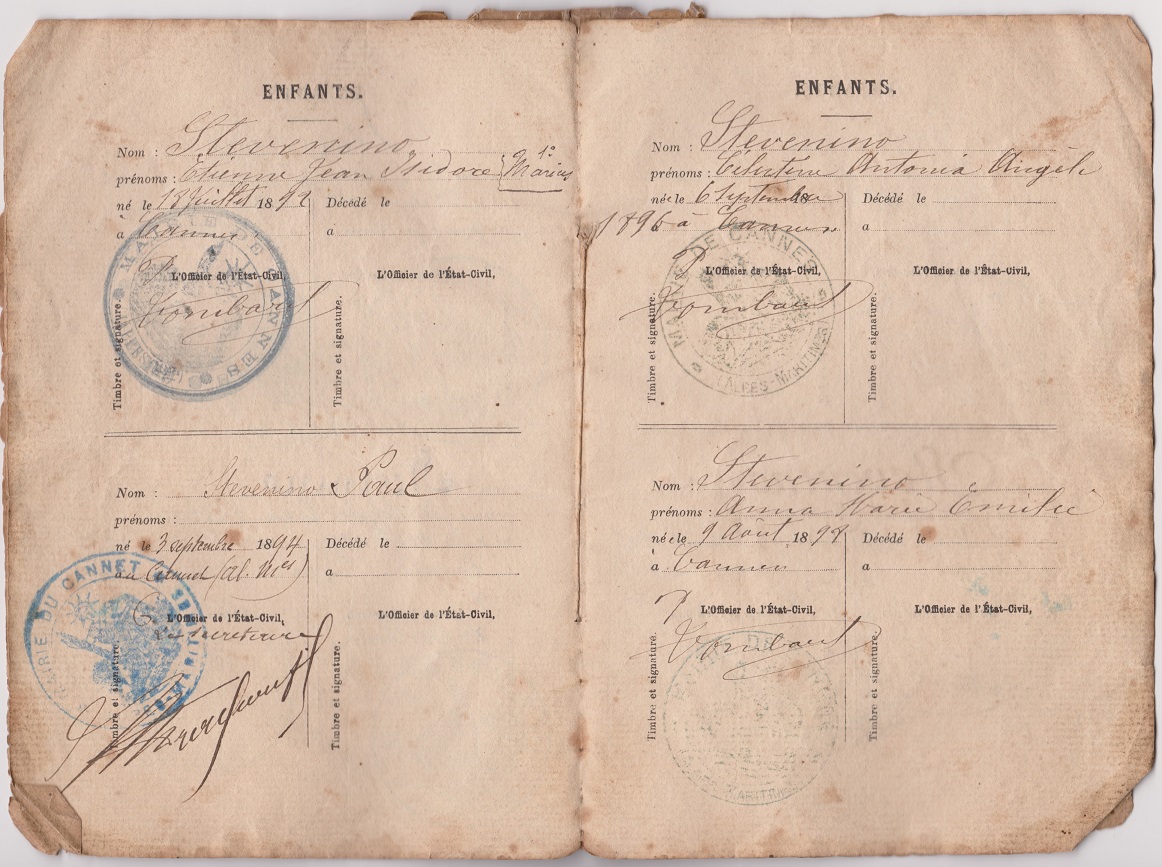 ENFANTS.
Nom : Stevenino
prénoms : Etienne Jean Isidore 1º Marius
né le 18 Juillet 1892 Décédé le
à Cannes a
L'Officier de l'État-Civil, L'Officier de l'État-Civil,
Timbre et signature. Timbre et signature.
MAIRIE DE CANNES
Nom : Stevenino Paul
prénoms :
né le 3 septembre 1894 Décédé le
au Cannet (Al. Mes) a
L'Officier de l'État-Civil, L'Officier de l'État-Civil,
Le secrétaire
Timbre et signature. Timbre et signature.
MAIRIE DU CANNET
ENFANTS.
Nom : Stevenino
prénoms : Célestine Antonia Angèle
née le 6 Septembre 18 Décédé le
1896 à Cannes a
L'Officier de l'État-Civil, L'Officier de l'État-Civil,
Timbre et signature. Timbre et signature.
MAIRIE DE CANNES
(ALPES-MARITIMES)
Nom : Stevenino
prénoms : Anna Marie Emilie
née le 9 Août 1898 Décédé le
à Cannes a
P.
L'Officier de l'État-Civil, L'Officier de l'État-Civil,
Timbre et signature. Timbre et signature.